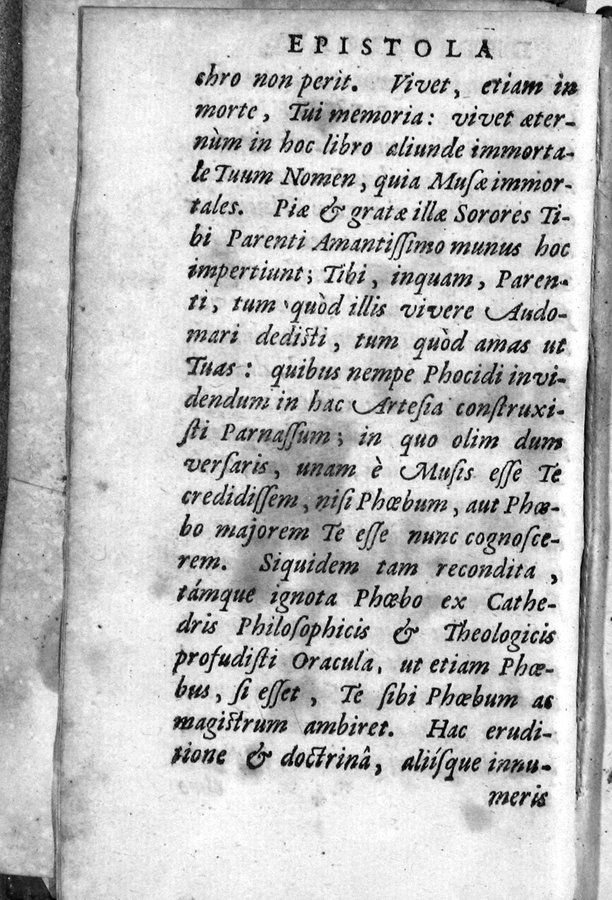 EPISTOLA
chro non perit. Vivet, etiam in
morte, Tui memoria: vivet æter-
nùm in hoc libro aliunde immorta-
le Tuum Nomen, quia Musæ immor-
tales. Piæ & gratæ illæ Sorores Ti-
bi Parenti Amantiſſimo munus hoc
impertiunt; Tibi, inquam, Paren-
ti, tum quòd illis vivere Audo-
mari dediſti, tum quòd amas ut
Tuas: quibus nempe Phocidi invi-
dendum in hac Arteſia conſtruxi-
ſti Parnaſſum; in quo olim dum
verſaris, unam è Muſis eſſe Te
credidiſſem, niſi Phœbum, aut Phœ-
bo majorem Te eſſe nunc cognoſce-
rem. Siquidem tam recondita,
támque ignota Phœbo ex Cathe-
dris Philoſophicis & Theologicis
profudiſti Oracula, ut etiam Phœ-
bus, ſi eſſet, Te ſibi Phœbum ac
magiſtrum ambiret. Hac erudi-
tione & doctrinâ, aliíſque innu-
meris